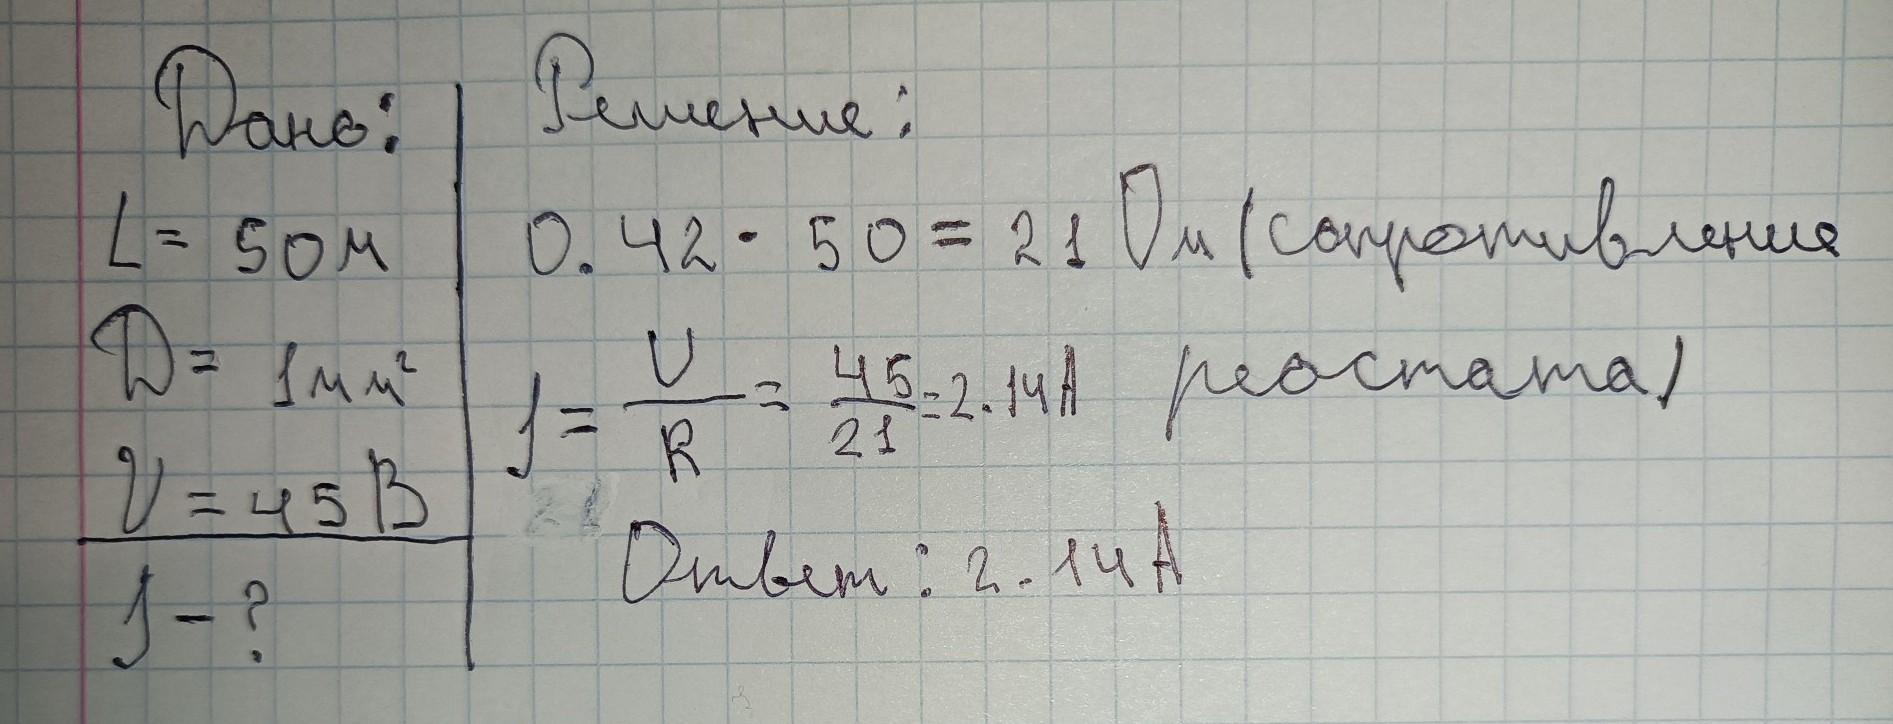 Дано:
L = 50м
D = 1мм²
U = 45В
J - ?
Решение:
0.42 · 50 = 21 Ом (сопротивление
реостата)
J = U/R = 45/21 = 2.14А
Ответ: 2.14А